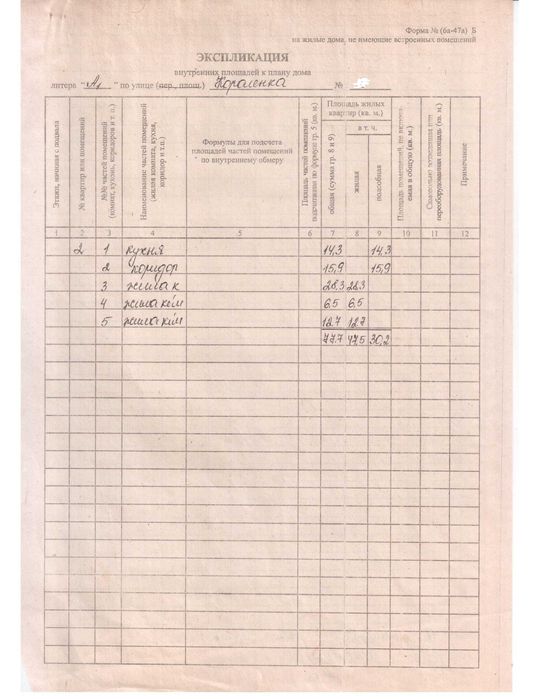 Форма № (6а-47а) Б
на жилые дома, не имеющие встроенных помещений
ЭКСПЛИКАЦИЯ
внутренних площадей к плану дома
литера "А₁" по улице (пер., площ.) Короленка №
Этажи, начиная с подвала
№ квартир или помещений
№№ частей помещений (комнат, кухонь, коридоров и т. п.)
Наименование частей помещений (жилая комната, кухня, коридор и т.п.)
Формулы для подсчета площадей частей помещений по внутреннему обмеру
Площадь частей помещений подсчитанная по формуле гр. 5 (кв. м.)
Площадь жилых квартир (кв. м.)
общая (сумма гр. 8 и 9)
в т. ч.
жилая
подсобная
Площадь помещений, не
в общую (кв. м.)
Самовольно возведенная или переоборудованная площадь (кв. м.)
Примечание
1 2 3 4 5 6 7 8 9 10 11 12
2 1 кухня 14,3 14,3
2 коридор 15,9 15,9
3 жилая к 28,3 28,3
4 жилая ком 6,5 6,5
5 жилая ком 12,7 12,7
77,7 47,5 30,2